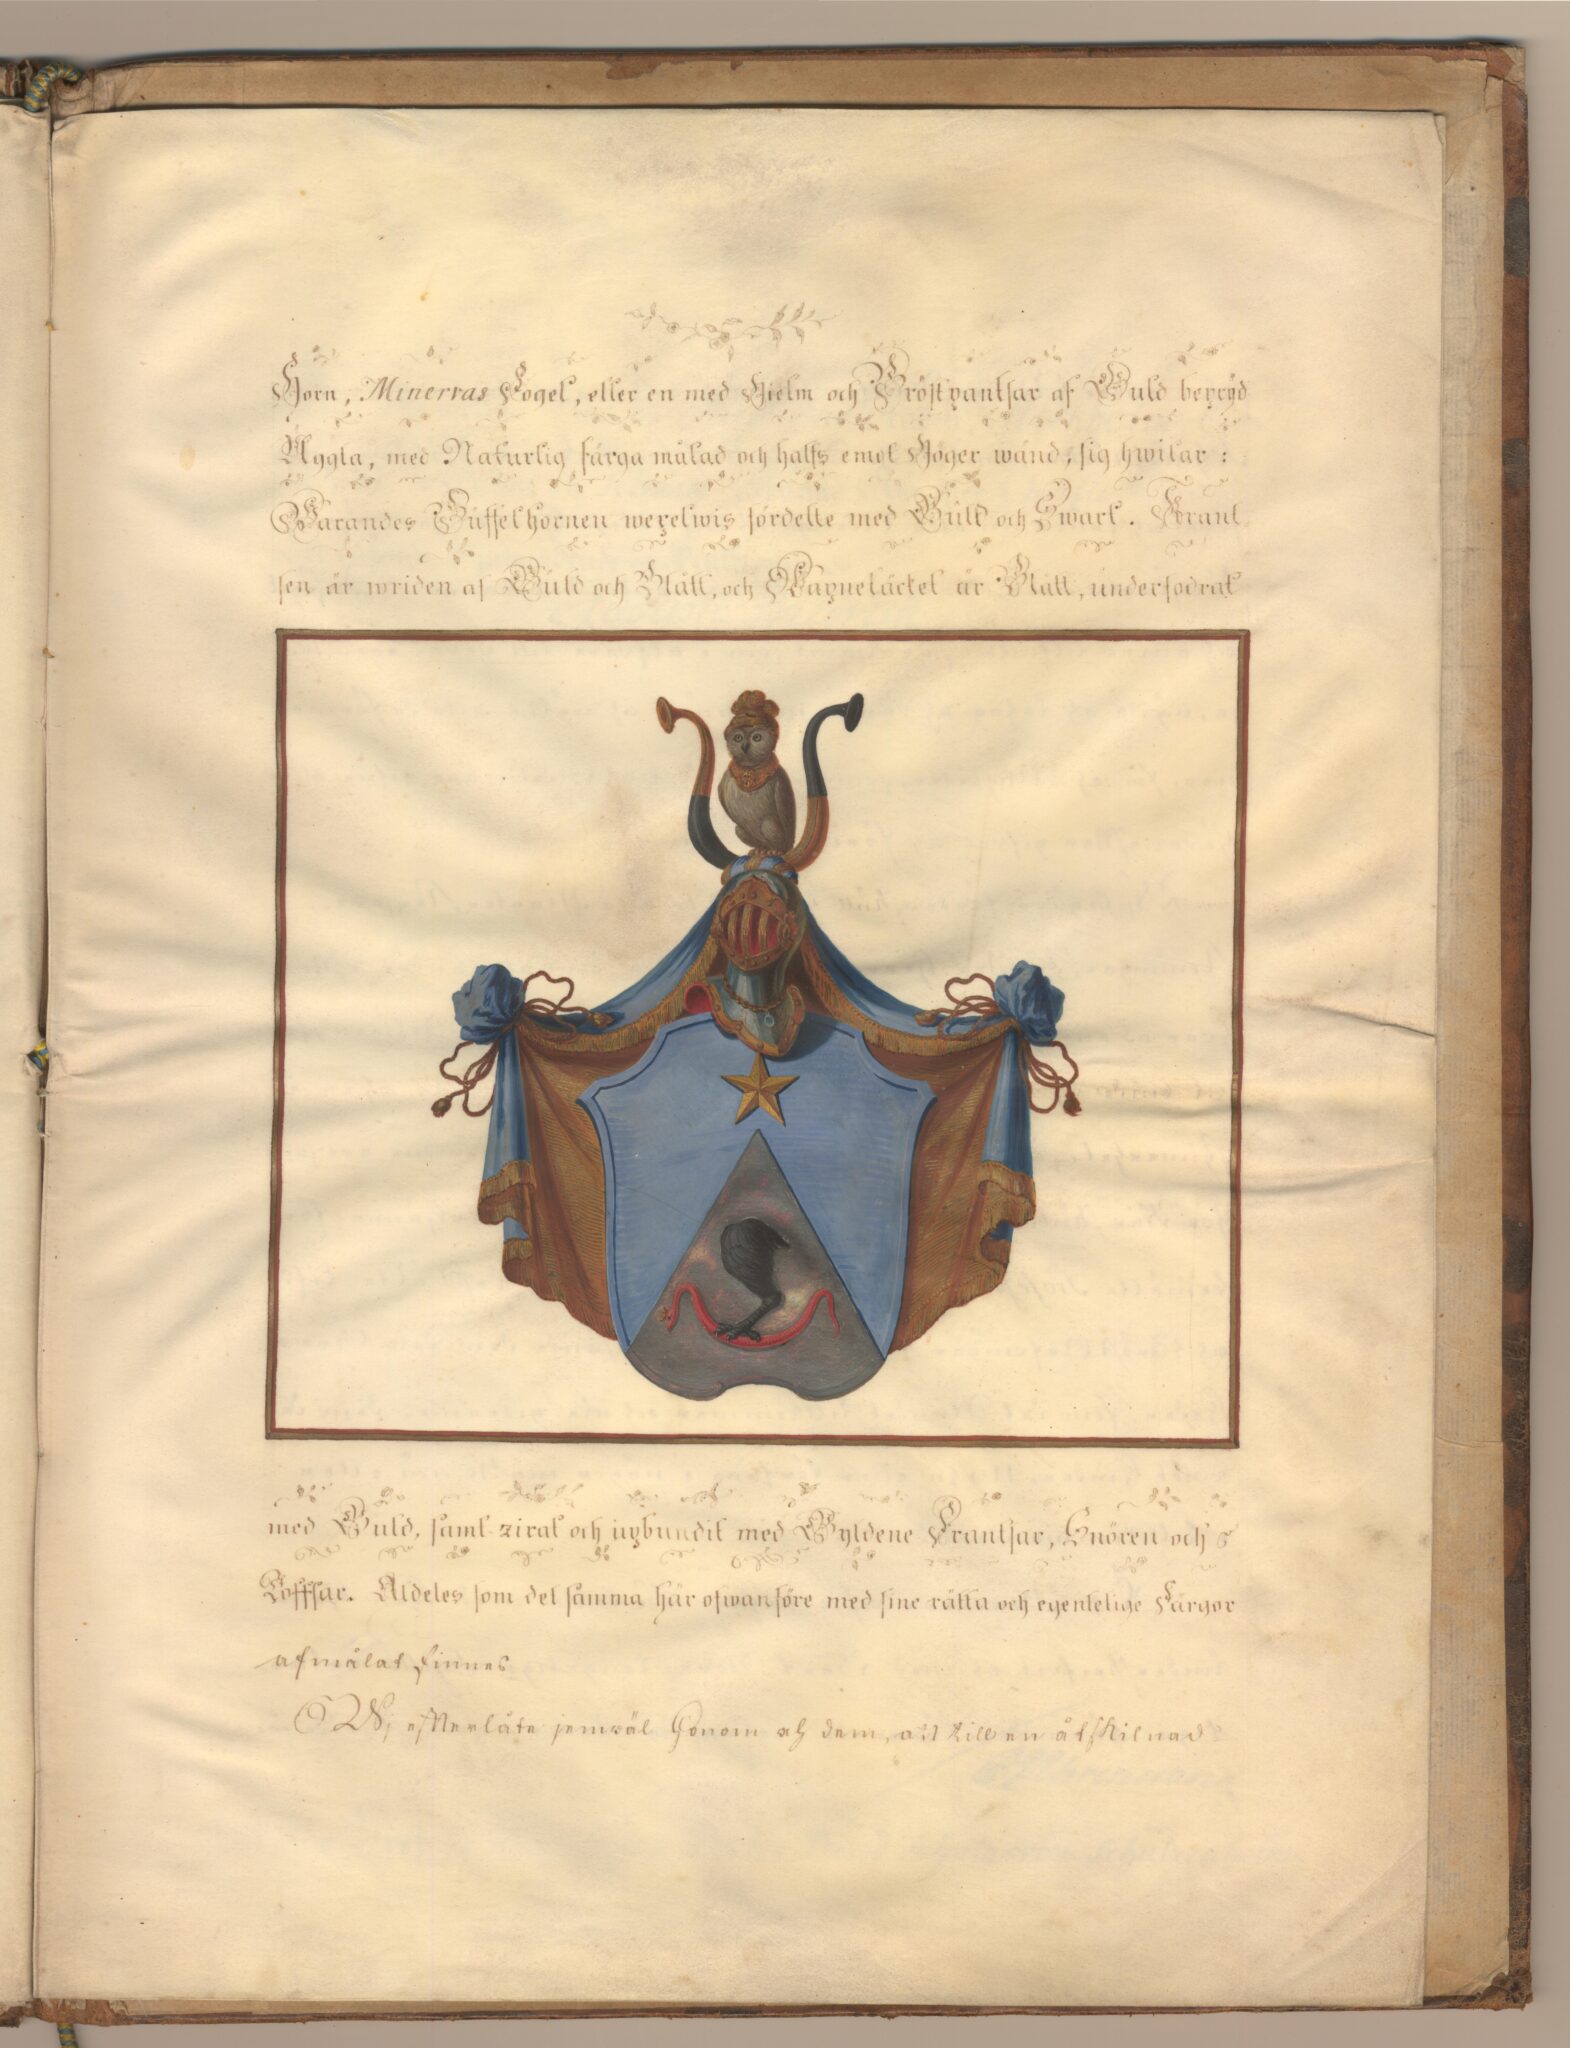 Horn, Minervas Fogel, eller en med Hielm och Bröstpantsar af Guld beprÿd
Uggla, med Naturlig färga målad och halfs emot Höger wänd, sig hwilar:
Warandes Büffelhornen wexelwis fördelte med Güld och Swart. Krant
sen är wriden af Güld och Blått, och Wapnetäcket är Blått, underfodrat
med Guld, samt zirat och upbundit med Gyldene Frantsar, Snören och
Toffsar. Aldeles som det samma här ofwanföre med sine rätta och egentelige Färgor
afmålat finnes
Wj efterlåte jemwäl honom och dem, att till en åtskilnad